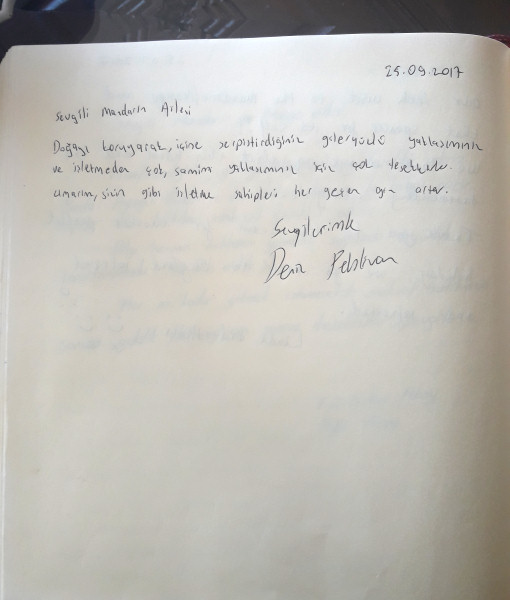 25.09.2017
Sevgili Mandarin Ailesi
Doğayı koruyarak, içine serpiştirdiğiniz güleryüzlü yaklaşımınız
ve işletmeden çok, samimi yaklaşımınız için çok teşekkürler.
Umarım, sizin gibi işletme sahipleri her geçen gün artar.
Sevgilerimle
Deniz Pehlivan